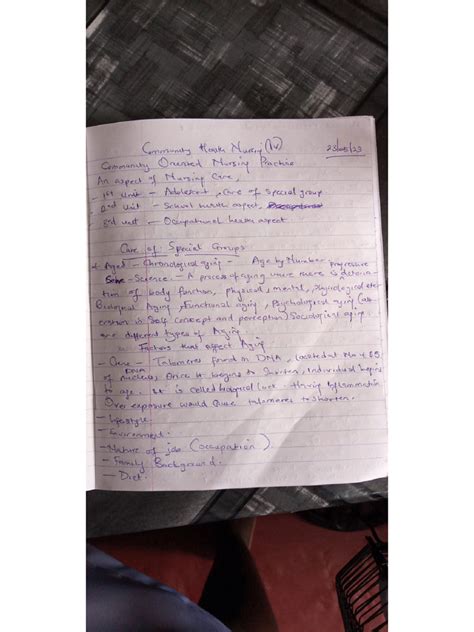 Community Health Nursing (IV) 23/05/23
Community Oriented Nursing Practice
An aspect of Nursing Care,
- 1st Unit - Adolescent, Care of special group
- 2nd Unit - School health aspect,
3rd unit - Occupational health aspect
Care of Special Groups
Aged - Chronological aging - Age by Number
- Science - A process of aging where there is progressive deteriora-
tion of body function, physical, mental, physiological etc
Biological Aging, Functional aging, Psychological aging (
in self concept and perception) Sociological aging
are different types of Aging
Factors that affect Aging
- Gene - Talomeres found in DNA, located at the
of DNA nucleus, Once it begins to shorten, Individual begins
to age. It is called biological clock. Having Inflammation
Over exposure would cause talomares to shorten.
- Lifestyle
- Environment
- Nature of job (occupation)
- Family Background.
- Diet.